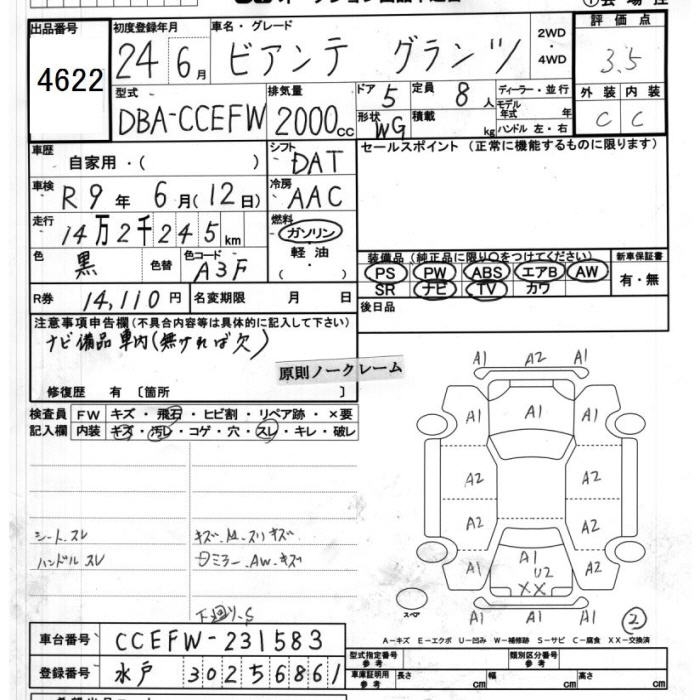 出品番号 4622
初度登録年月 24 6月
車名・グレード ビアンテ グランツ
2WD ・ 4WD
評価点 3.5
外装 内装
C C
型式 DBA-CCEFW
排気量 2000cc
ドア 5 定員 8人
形状 WG 積載 kg
ディーラー・並行
モデル年式 年
ハンドル 左・右
車歴 自家用・( )
シフト DAT
セールスポイント (正常に機能するものに限ります)
車検 R9年 6月(12日)
冷房 AAC
走行 14万2千245km
燃料 ガソリン
軽油
・( )
色 黒 色替 色コード A3F
装備品 (純正品に限り○をつけてください)
PS PW ABS エアB AW
SR ナビ TV カワ
新車保証書
有・無
R券 14,110円 名変期限 月 日
後日品
注意事項申告欄 (不具合内容等は具体的に記入して下さい)
ナビ備品車内(無ければ欠)
原則ノークレーム
修復歴 有 〔箇所 〕
検査員 FW キズ・飛石・ヒビ割・リペア跡・×要
記入欄 内装 キズ・汚レ・コゲ・穴・スレ・キレ・破レ
シート.スレ
ハンドルスレ
下廻り.S
A1 A2 A1
A1 A1 A1
A2 A2
A2 A2
A1 A1 A1
U2
XX
A1 A2
スペア
②
A-キズ E-エクボ U-凹み W-補修跡 S-サビ C-腐食 XX-交換済
車台番号 CCEFW-231583
登録番号 水戸 302 5 6861
型式指定番号 参考 類別区分番号 参考
車庫証明用 参考 長さ cm 幅 cm 高さ cm